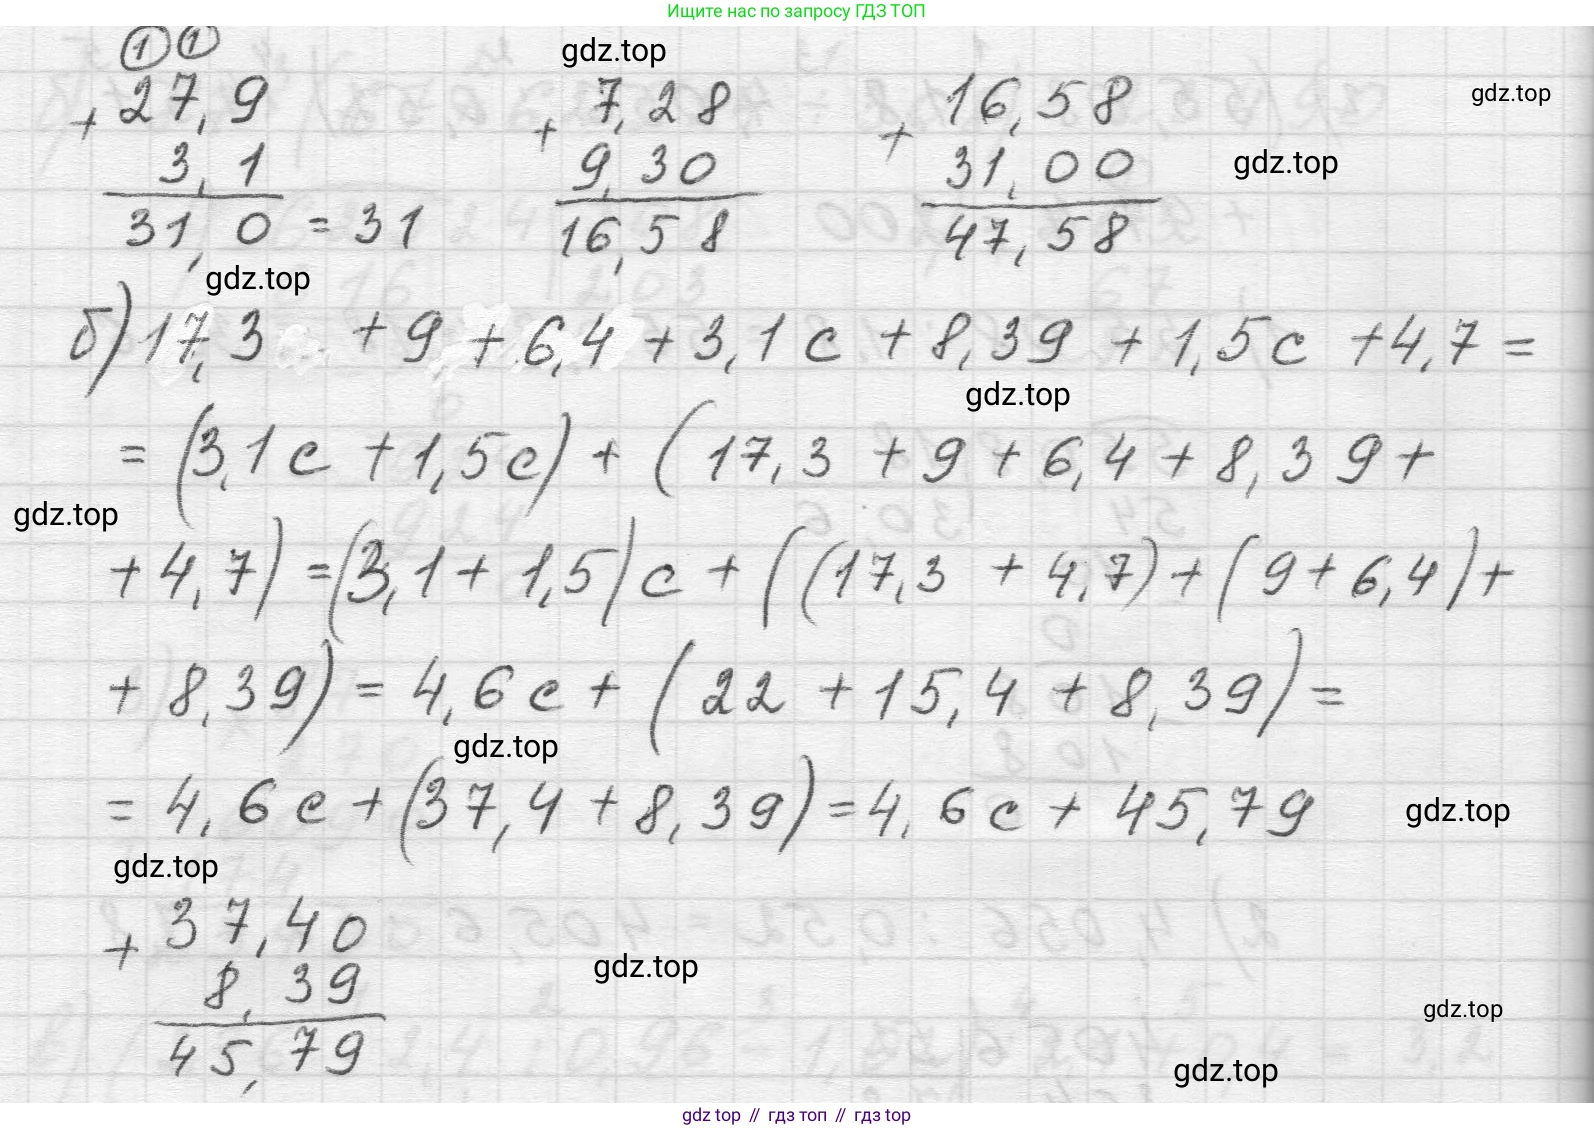 Ищите нас по запросу ГДЗ ТОП
1 1
+ 27,9
3,1
31,0 = 31
+ 7,28
9,30
16,58
+ 16,58
31,00
47,58
gdz.top
gdz.top
gdz.top
gdz.top
б) 17,3 + 9 + 6,4 + 3,1с + 8,39 + 1,5с + 4,7 =
gdz.top
= (3,1с + 1,5с) + (17,3 + 9 + 6,4 + 8,39 +
gdz.top
+ 4,7) = (3,1 + 1,5)с + ((17,3 + 4,7) + (9 + 6,4) +
+ 8,39) = 4,6с + (22 + 15,4 + 8,39) =
gdz.top
= 4,6с + (37,4 + 8,39) = 4,6с + 45,79
gdz.top
gdz.top
+ 37,40
8,39
45,79
gdz.top
gdz.top
gdz.top
gdz top // гдз топ // гдз top